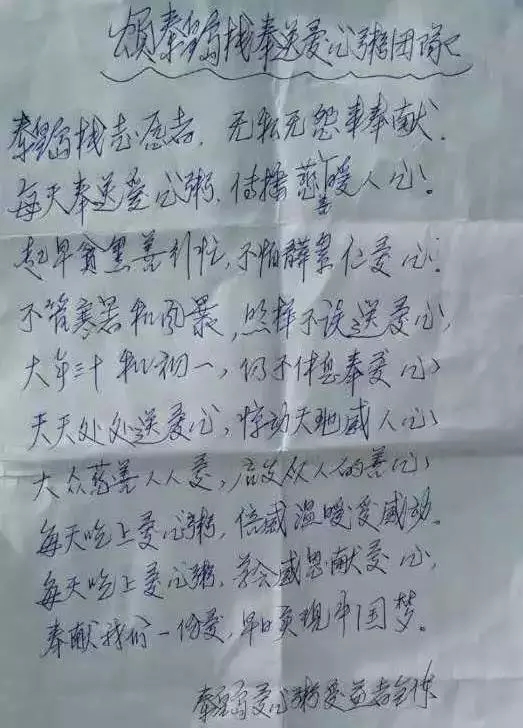 颂秦皇岛栈奉送爱心粥团队
秦皇岛栈志愿者，无私无怨来奉献.
每天奉送爱心粥，传播慈善暖人心。
起早贪黑善引忙，不怕群累仁爱心.
不管寒暑和风暴，照样不误送爱心，
大年三十和初一，仍不休息奉爱心
天天处处送爱心，惊动天地感人心
大众慈善人人爱，启发众人的善心
每天吃上爱心粥，倍感温暖受感动.
每天吃上爱心粥，学会感恩献爱心，
奉献我们一份爱，早日实现中国梦。
秦皇岛爱心粥受益者全体